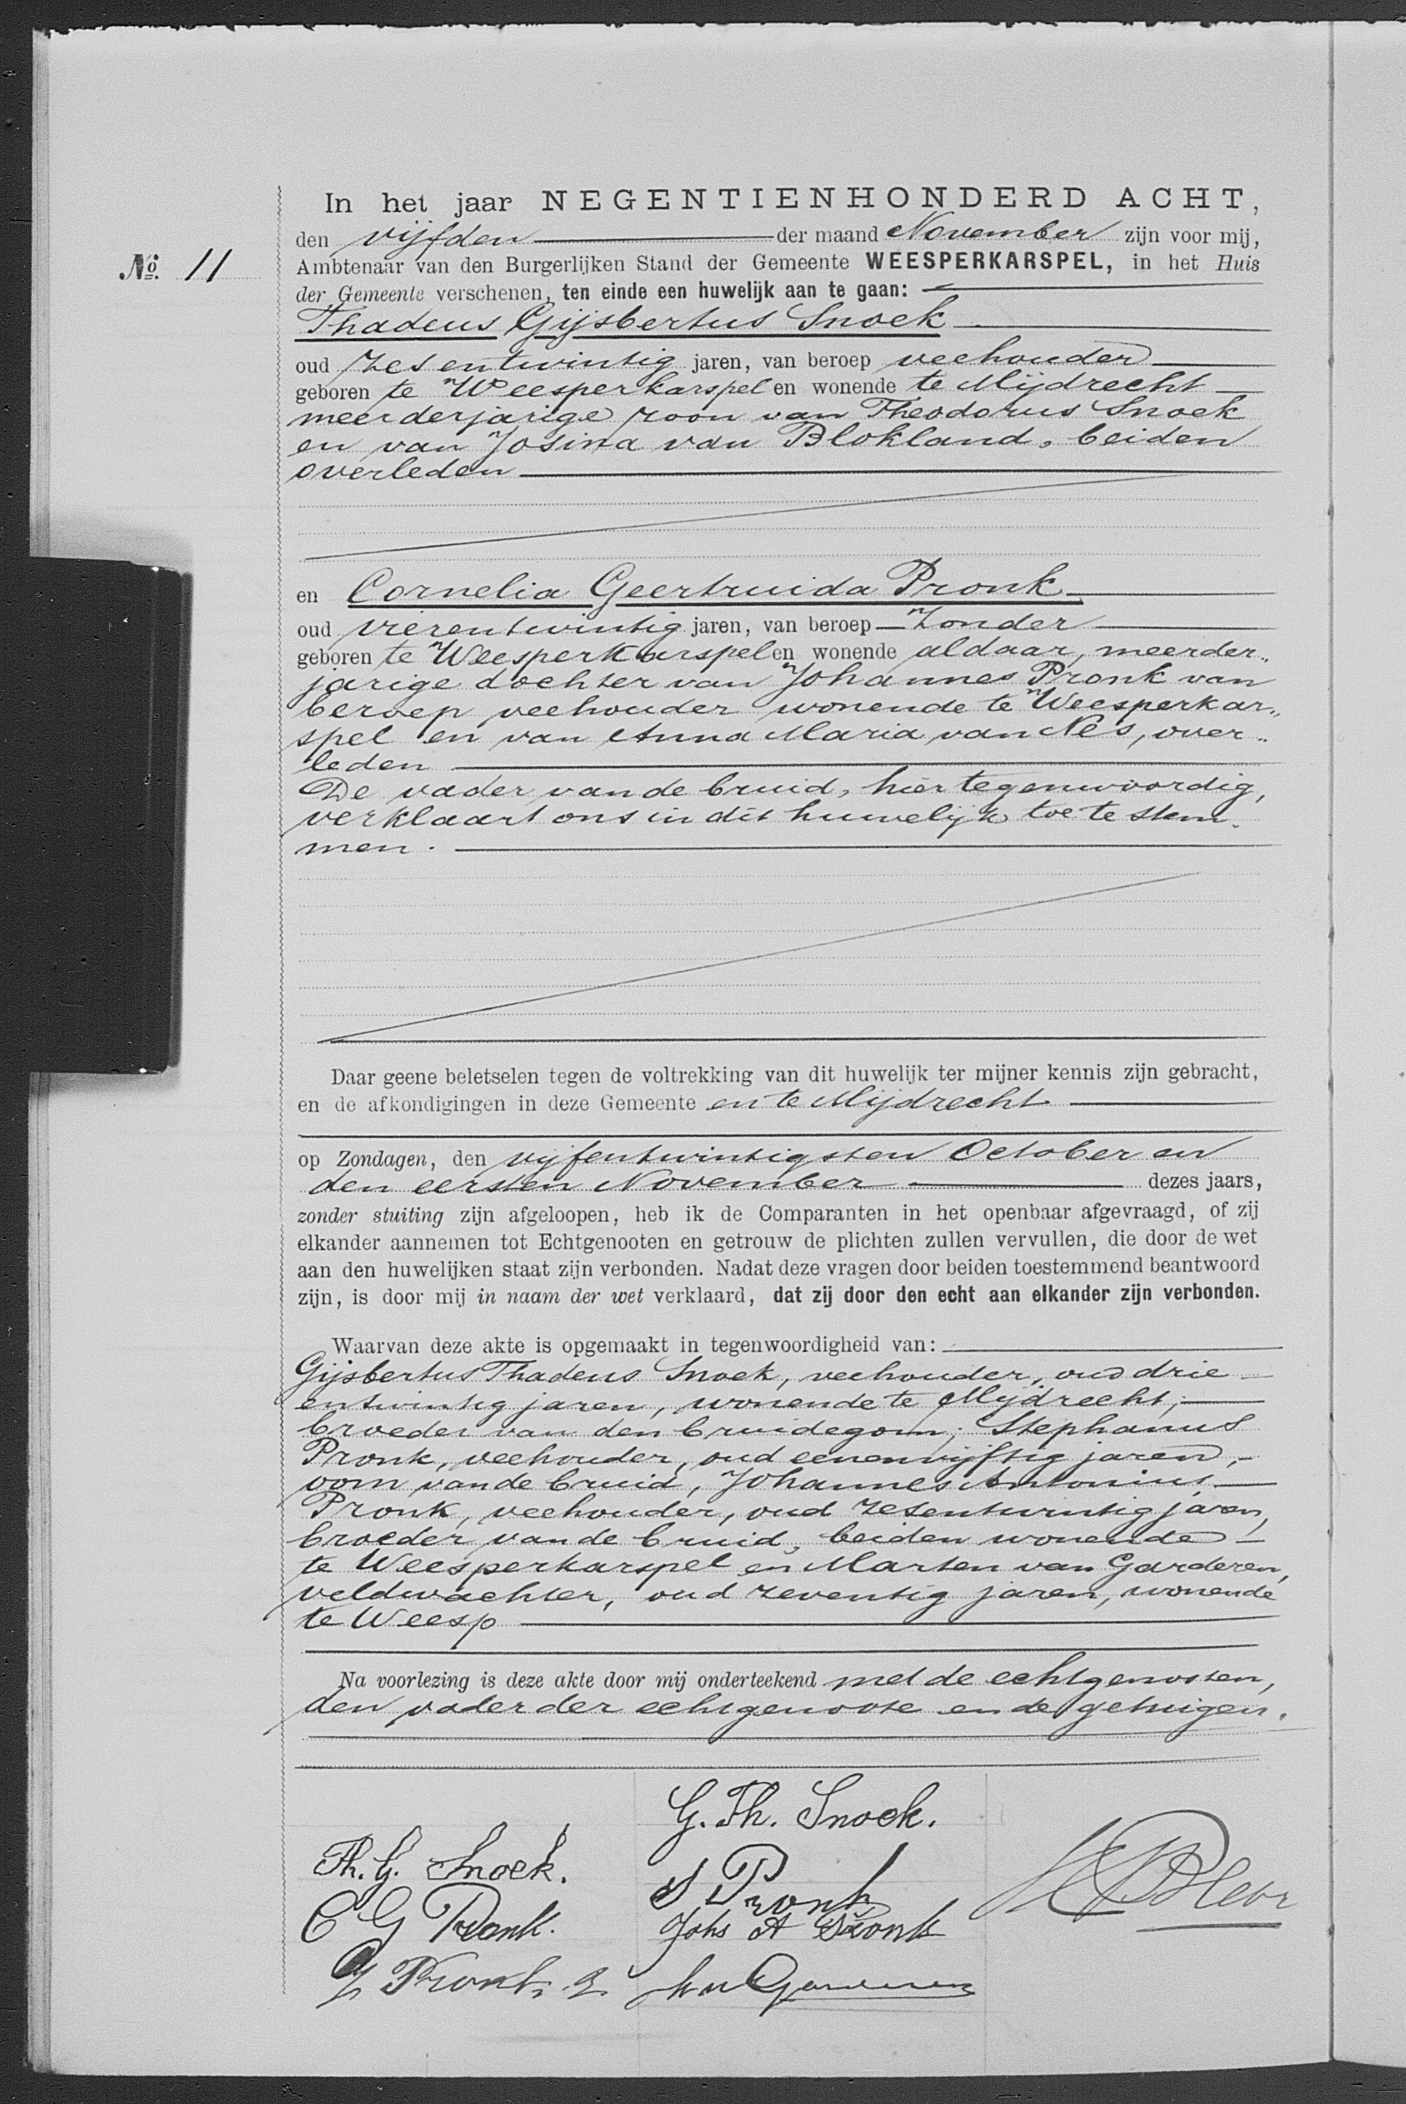 In het jaar NEGENTIENHONDERD ACHT,
den vijfden der maand November zijn voor mij,
No. 11
Ambtenaar van den Burgerlijken Stand der Gemeente WEESPERKARSPEL, in het Huis
der Gemeente verschenen, ten einde een huwelijk aan te gaan:
Thadeus Gijsbertus Snoek
oud zesentwintig jaren, van beroep veehouder
geboren te Weesperkarspel en wonende te Mijdrecht
meerderjarige zoon van Theodorus Snoek
en van Josina van Blokland, beiden
overleden
en Cornelia Geertruida Pronk
oud vierentwintig jaren, van beroep zonder
geboren te Weesperkarspel en wonende aldaar, meerder„
jarige dochter van Johannes Pronk van
beroep veehouder wonende te Weesperkar„
spel en van Anna Maria van Nes, over„
leden
De vader van de bruid, hier tegenwoordig,
verklaart ons in dit huwelijk toe te stem„
men.
Daar geene beletselen tegen de voltrekking van dit huwelijk ter mijner kennis zijn gebracht,
en de afkondigingen in deze Gemeente en te Mijdrecht
op Zondagen, den vijfentwintigsten October en
den eersten November dezes jaars,
zonder stuiting zijn afgeloopen, heb ik de Comparanten in het openbaar afgevraagd, of zij
elkander aannemen tot Echtgenooten en getrouw de plichten zullen vervullen, die door de wet
aan den huwelijken staat zijn verbonden. Nadat deze vragen door beiden toestemmend beantwoord
zijn, is door mij in naam der wet verklaard, dat zij door den echt aan elkander zijn verbonden.
Waarvan deze akte is opgemaakt in tegenwoordigheid van:
Gijsbertus Thadeus Snoek, veehouder, oud drie
entwintig jaren, wonende te Mijdrecht,
broeder van den bruidegom; Stephanus
Pronk, veehouder, oud eenenvijftig jaren,
oom van de bruid, Johannes Antonius
Pronk, veehouder, oud zesentwintig jaren,
broeder van de bruid, beiden wonende
te Weesperkarspel en Marten van Garderen,
veldwachter, oud zeventig jaren, wonende
te Weesp
Na voorlezing is deze akte door mij onderteekend met de echtgenooten,
den vader der echtgenoote en de getuigen.
G. Th. Snoek.
Th. G. Snoek.
S Pronk
C G Pronk.
Johs A Pronk
J Pronk